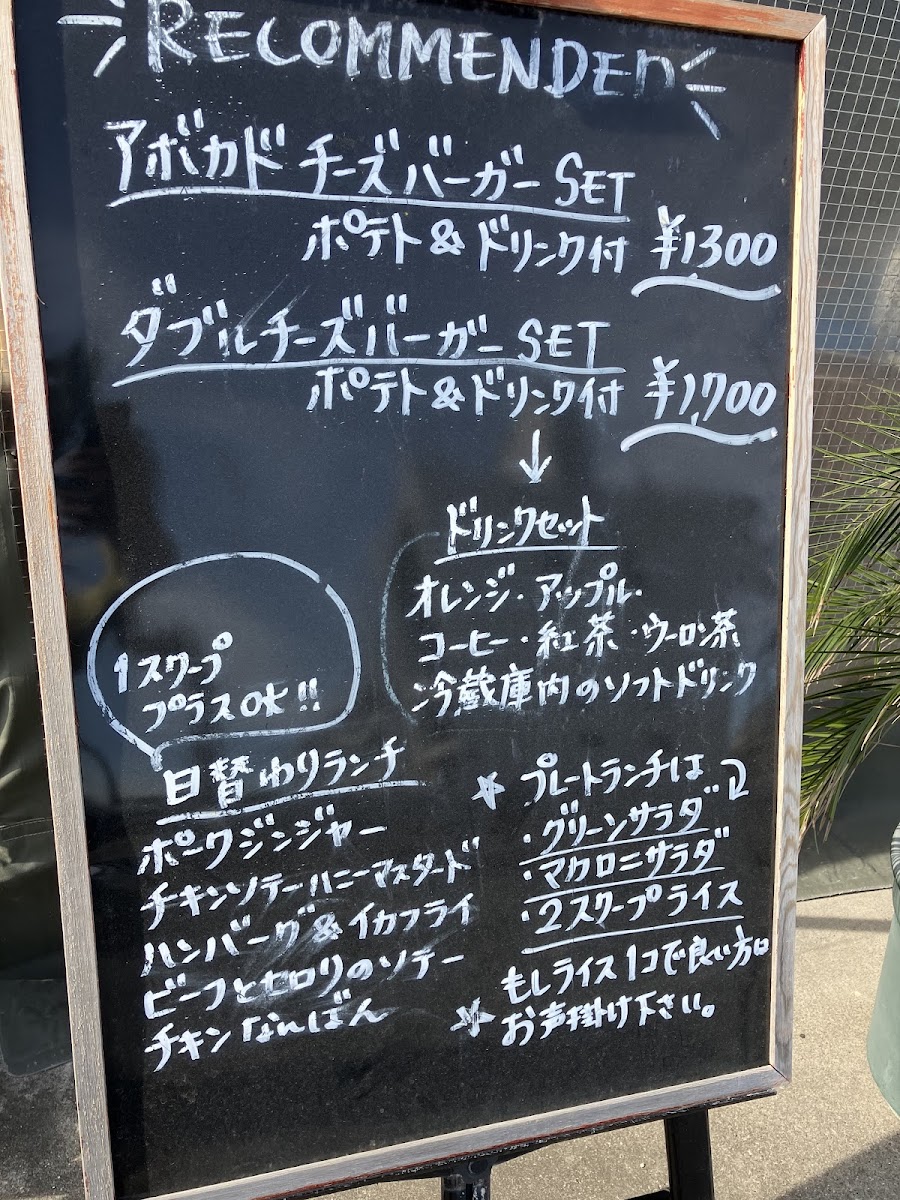 RECOMMENDED
アボカドチーズバーガー SET
ポテト&ドリンク付 ¥1300
ダブルチーズバーガー SET
ポテト&ドリンク付 ¥1,700
↓
ドリンクセット
オレンジ・アップル・
コーヒー・紅茶・ウーロン茶
冷蔵庫内のソフトドリンク
1スクープ
プラスOK!!
日替わりランチ
ポークジンジャー
チキンソテーハニーマスタード
ハンバーグ&イカフライ
ビーフとセロリのソテー
チキンなんばん
★ プレートランチは
・グリーンサラダ
・マカロニサラダ
・2スクープライス
もしライス1コで良い方は
★ お声掛け下さい。